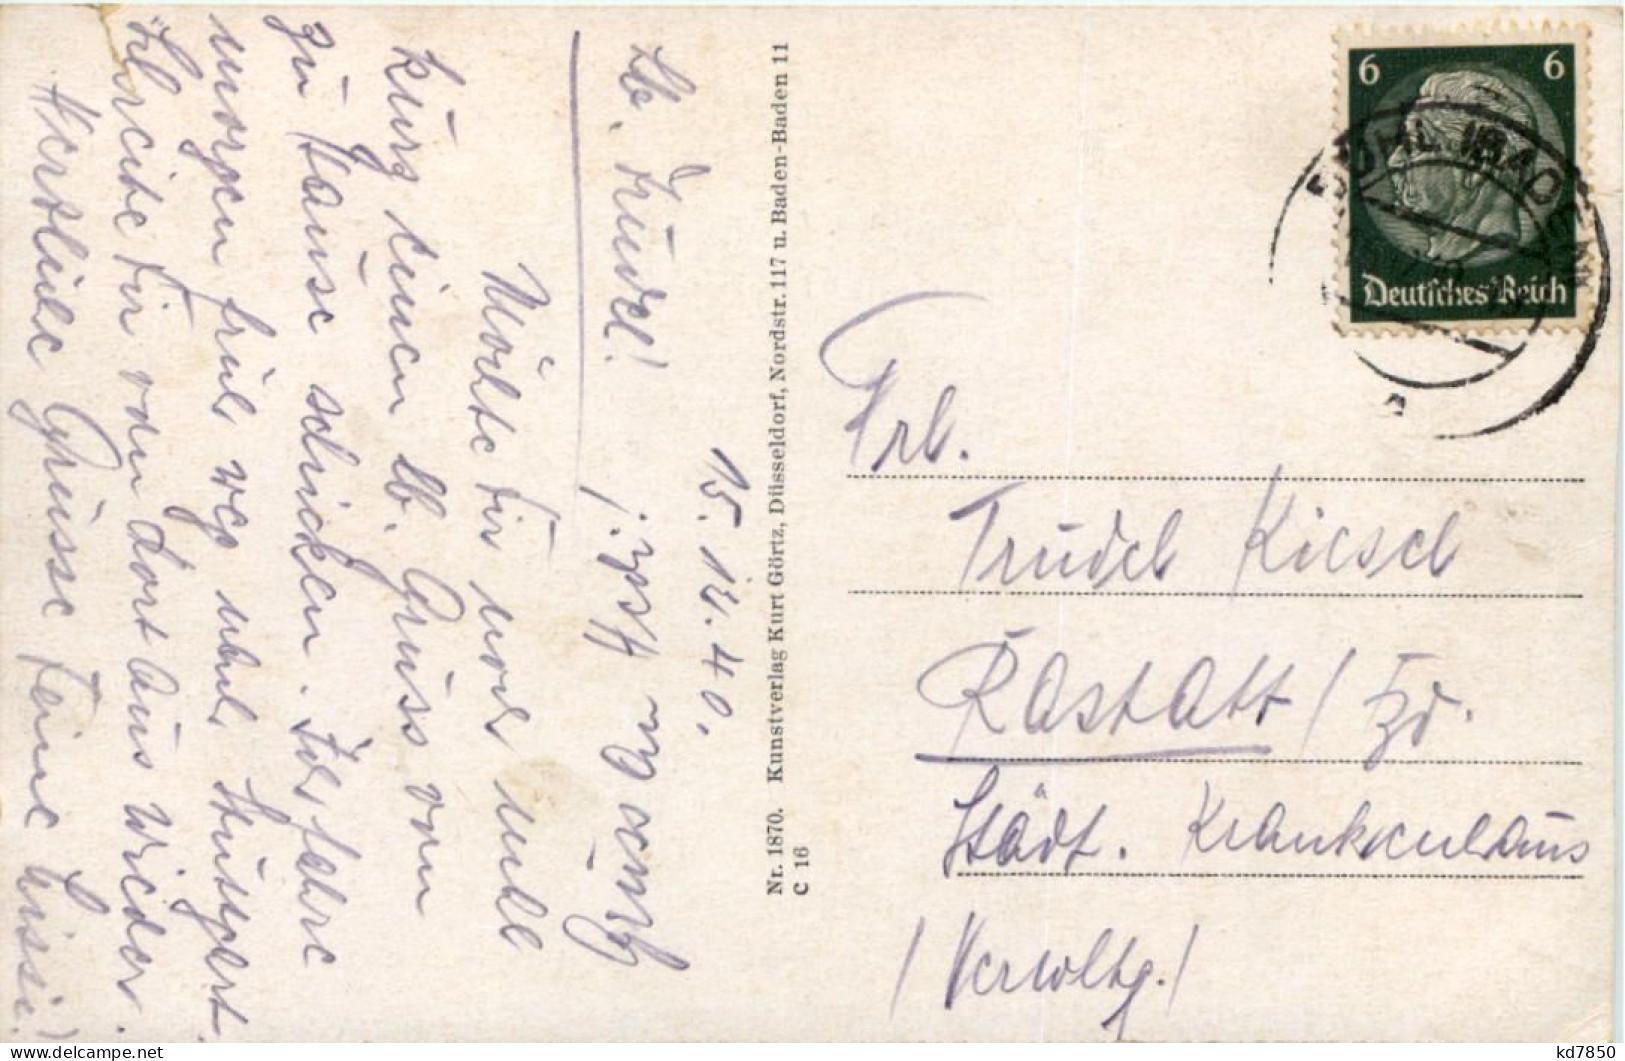 15. 12. 40.
Lb. Trudel!
Möchte Dir noch recht
kurz einen lb. Gruss von
zu Hause schicken. Ich fahre
morgen früh weg nach Stuttgart.
Schreibe Dir von dort aus wieder.
Herzliche Grüsse Deine Luise!
Nr. 1870. Kunstverlag Kurt Görtz, Düsseldorf, Nordstr. 117 u. Baden-Baden 11
C 16
6 6
Deutsches Reich
BÜHL (BADEN)
Frl.
Trudel Kiesel
Rastatt / Bd.
Städt. Krankenhaus
/ Verwaltg. /
kd7850